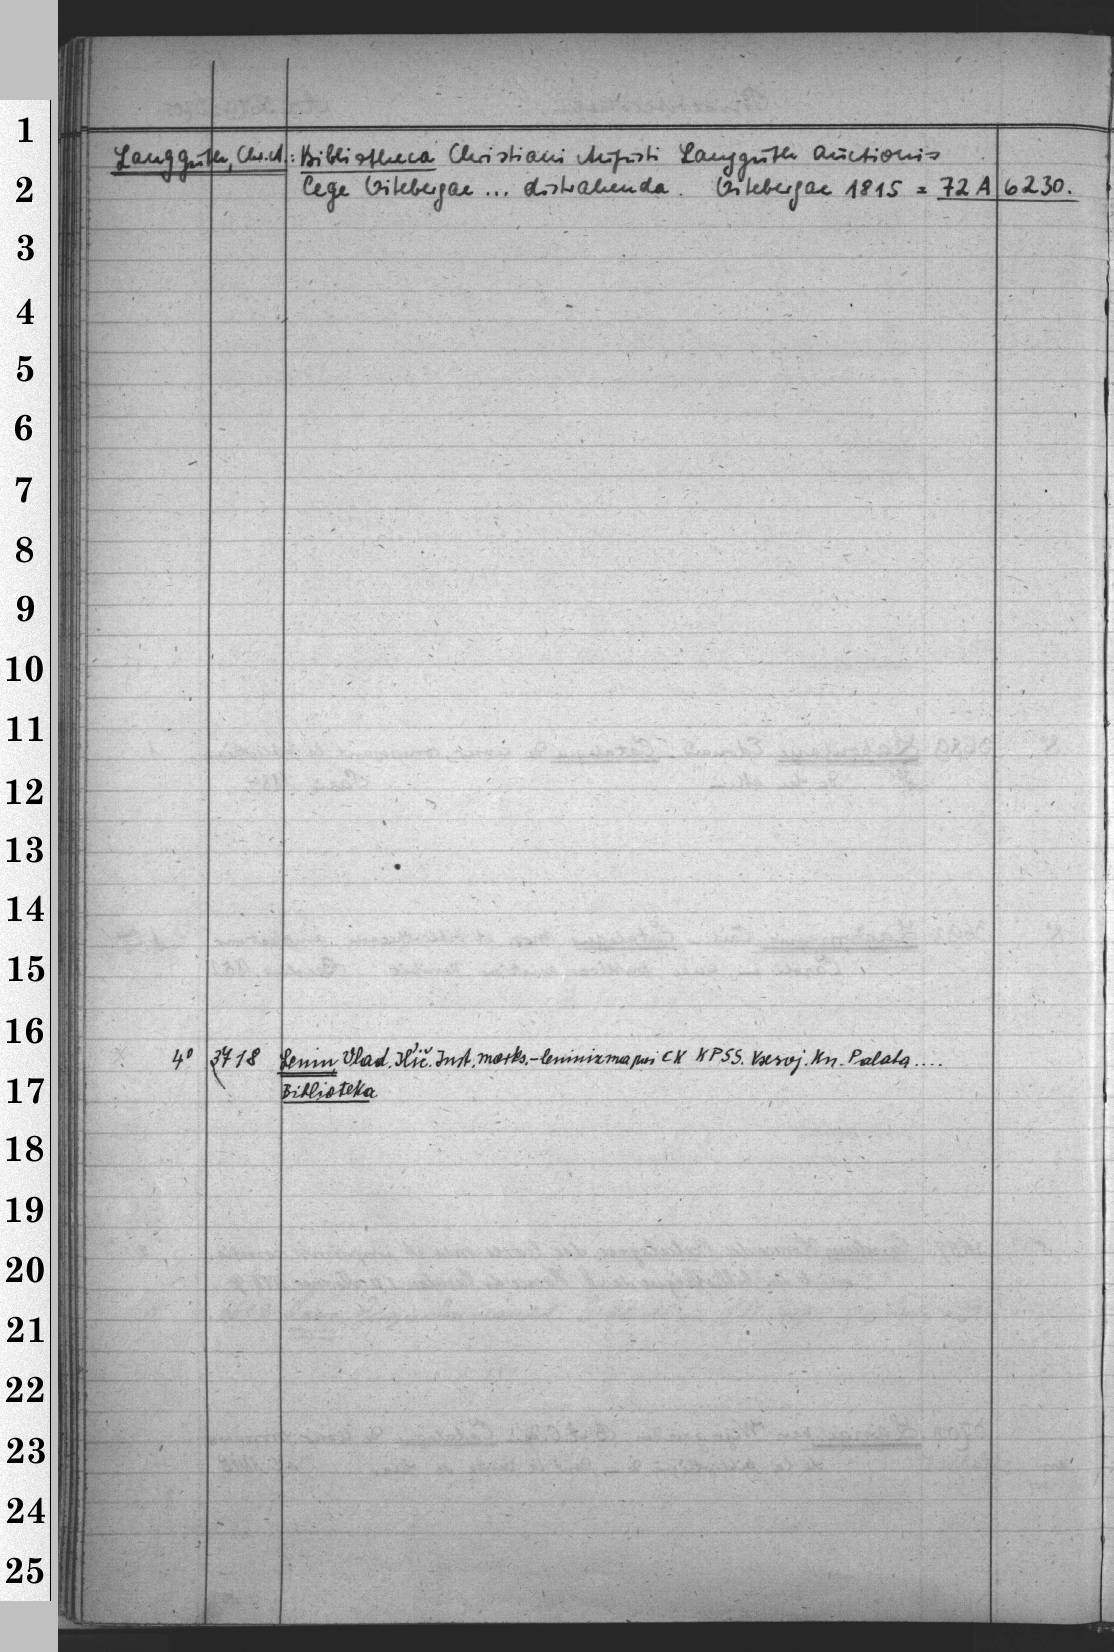 1
2
3
4
5
6
7
8
9
10
11
12
13
14
15
16
17
18
19
20
21
22
23
24
25
Langguth, Chr. A.: Bibliotheca Christiani Augusti Langguth auctionis
lege Vitebergae ... distrahenda. Vitebergae 1815 = 72 A 6230.
4° 3718 Lenin, Vlad. Il'ič. Inst. marks.-leninizma pri CK KPSS. Vsesoj. Kn. Palata ....
Biblioteka